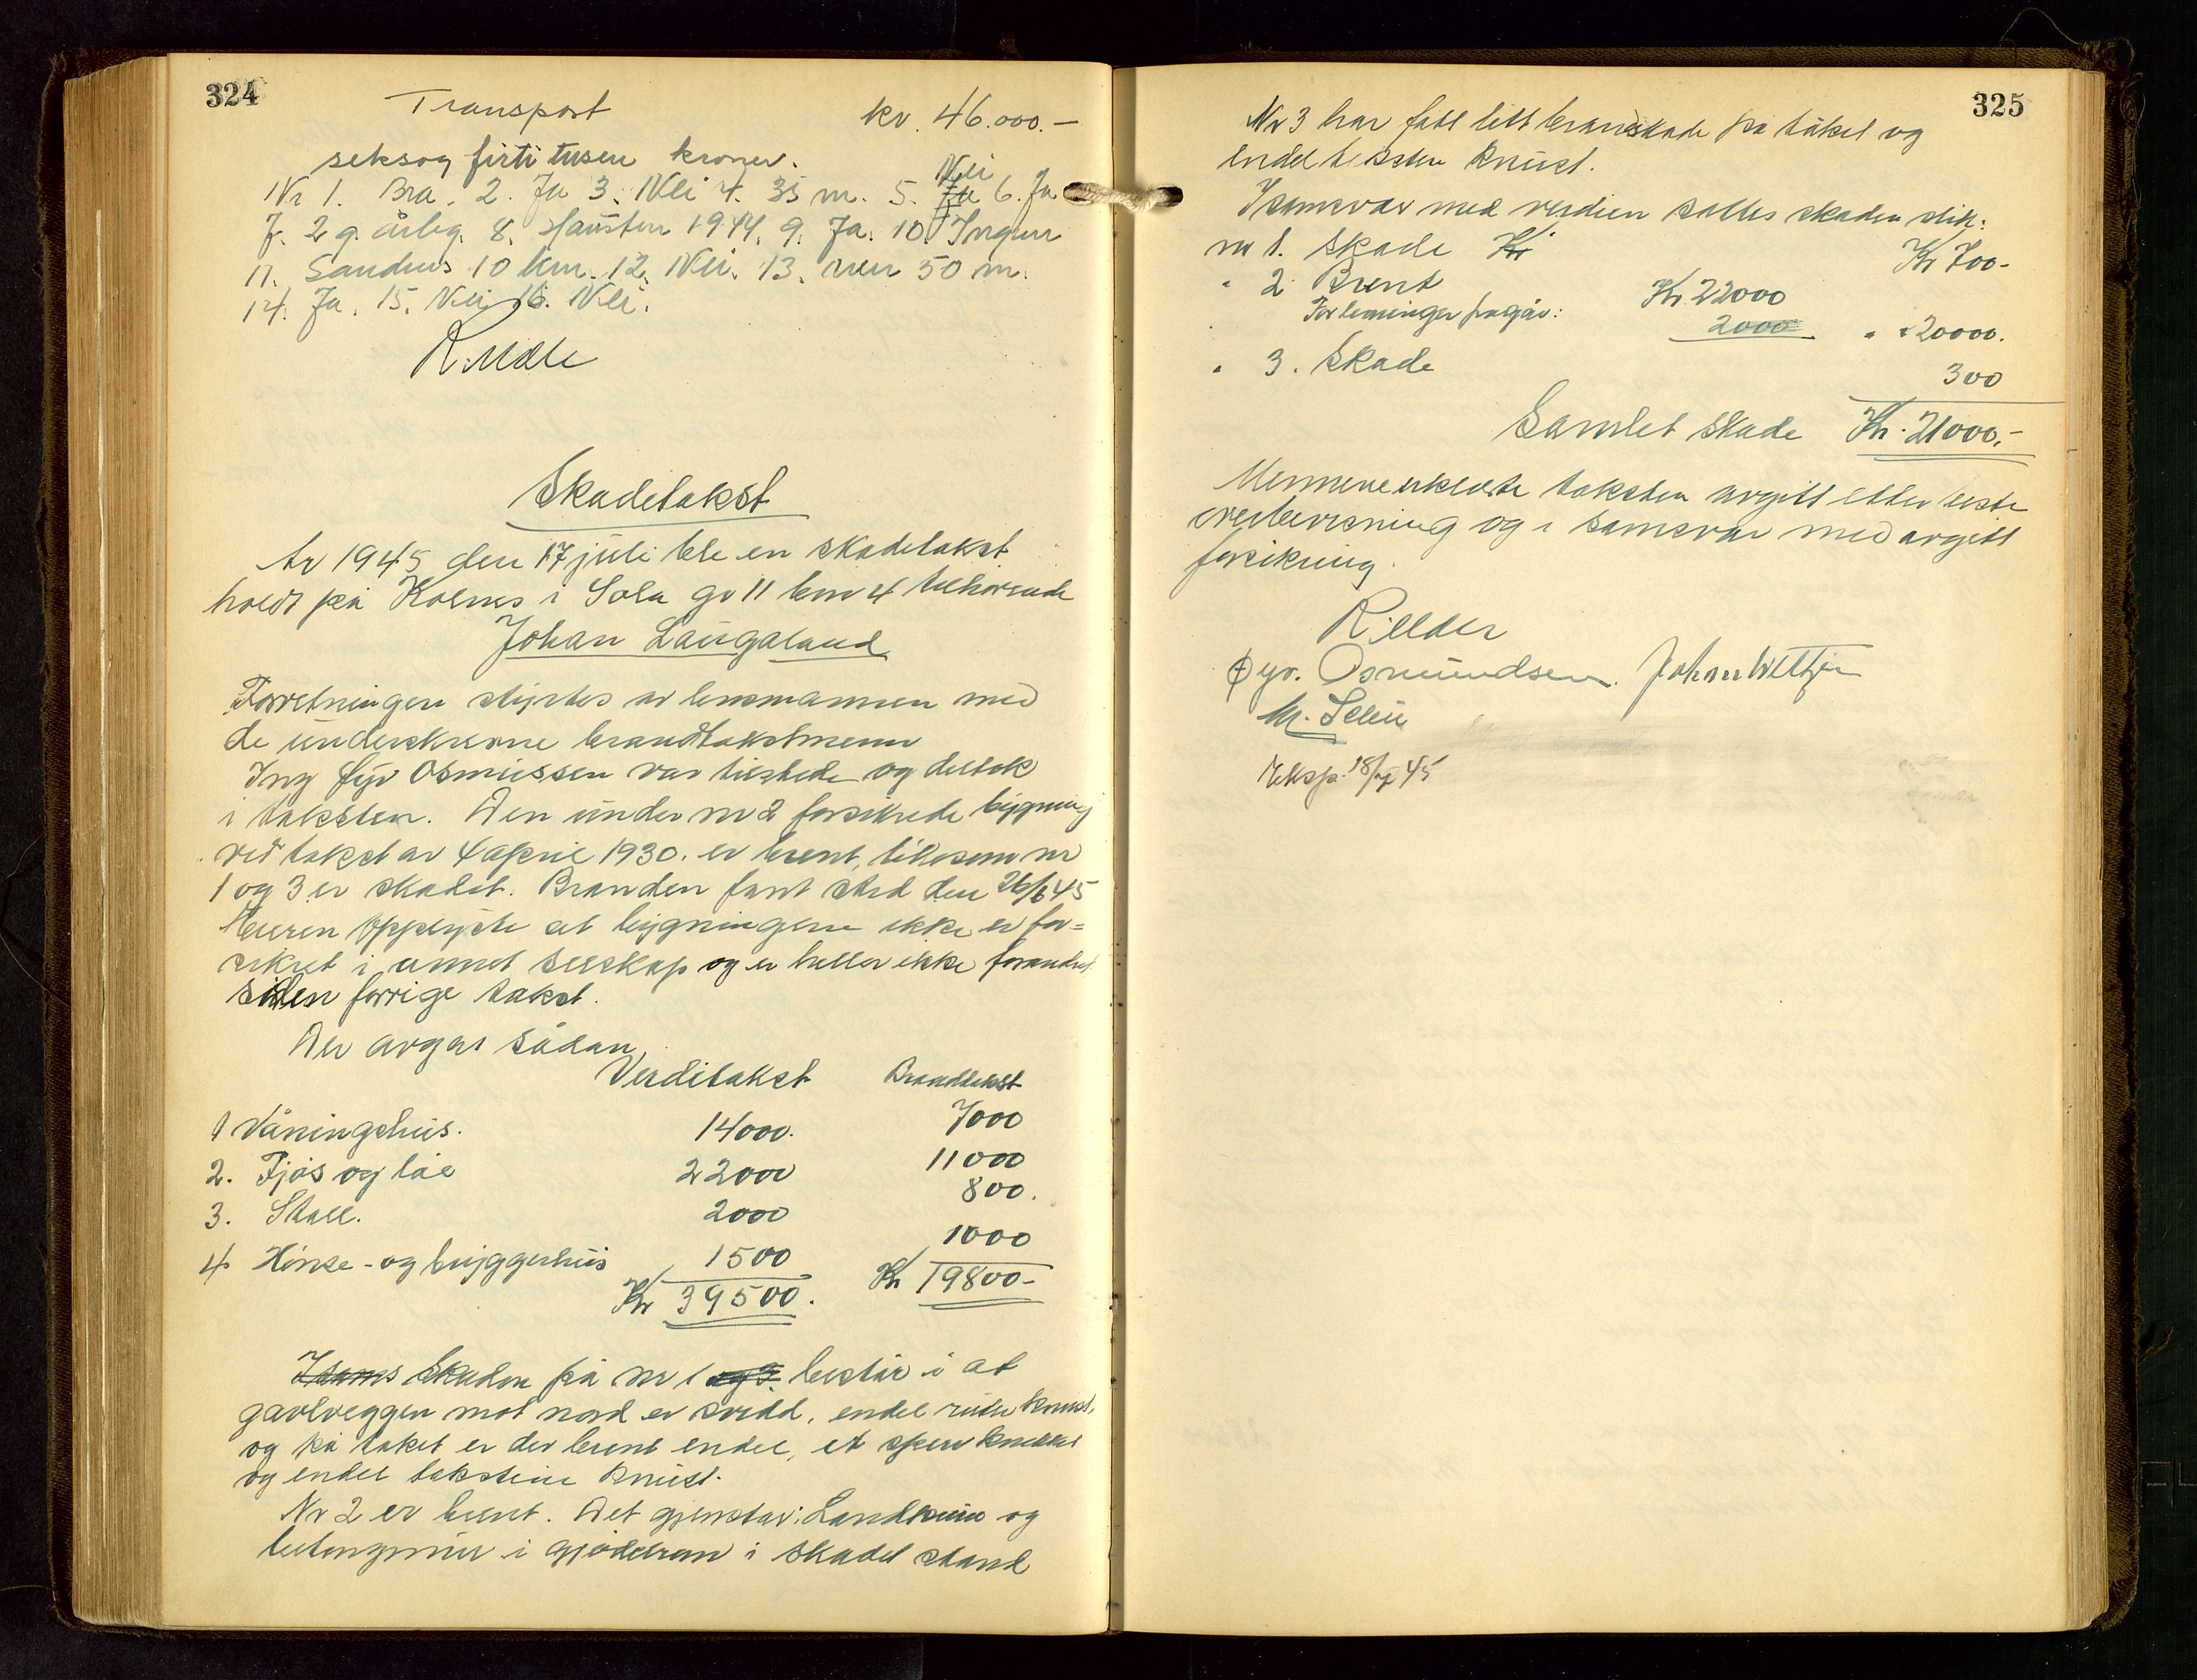 324
Transport kr. 46.000.-
seksog firti tusen kroner.
Nr 1. Bra. 2. Ja 3. Nei 4. 35 m. 5. Ja Nei 6. Ja
7. 2 g. årleg. 8. Hausten 1944. 9. Ja. 10. Ingen
11. Sandnes 10 km. 12. Nei. 13. 50 m.
14. Ja. 15. Nei 16. Nei.
Skadetakst
År 1945 den 17 juli ble en skadetakst
holdt på Kolnes i Sola gr 11 bnr 4 tilhørende
Johan Laugaland
Forretningen styrtes av lensmannen med
de underskrevne brandtakstmenn
Ing Øyv Osmussen var tilstede og deltok
i taksten. Den under nr 2 forsikrede bygning
ved takst av 4 april 1930. er brent, likesom nr
1 og 3 er skadet. Branden fant sted den 26/6 45
Eieren opplyste at bygningene ikke er for=
sikret i annet selskap og er heller ikke forandret
siden forrige takst.
Der avgas sådan
Verditakst Brandtakst
1 Våningshus. 14000. 7000
2. Fjøs og løe 22000 11000
3. Stall. 2000 800.
4. Hønse- og bryggerhus 1500 1000
Kr 39500. Kr 19800-
Isams Skaden på nr 1 og 3. består i at
gavlveggen mot nord er svidd, endel ruter knust,
og på taket er der brent endel, et sperr knekket
og endel takstein knust.
Nr 2 er brent. Det gjenstar: Landkum og
betongmur i gjødelrom i skadet stand
325
Nr 3 har fått litt brandskade på taket og
endel taksten knust.
I samsvar med verdien settes skaden slik:
nr 1. Skade Kr Kr 700-
" 2 Brent Kr. 22000
" Forleninger fragår: 2000 " 20000.
" 3. Skade 300
Samlet skade Kr. 21000.-
Mennene erklærte taksten avgitt etter beste
overbevisning og i samsvar med avgitt
forsikring.
Øyv. Osmundsen.
Eksp. 18/7 45